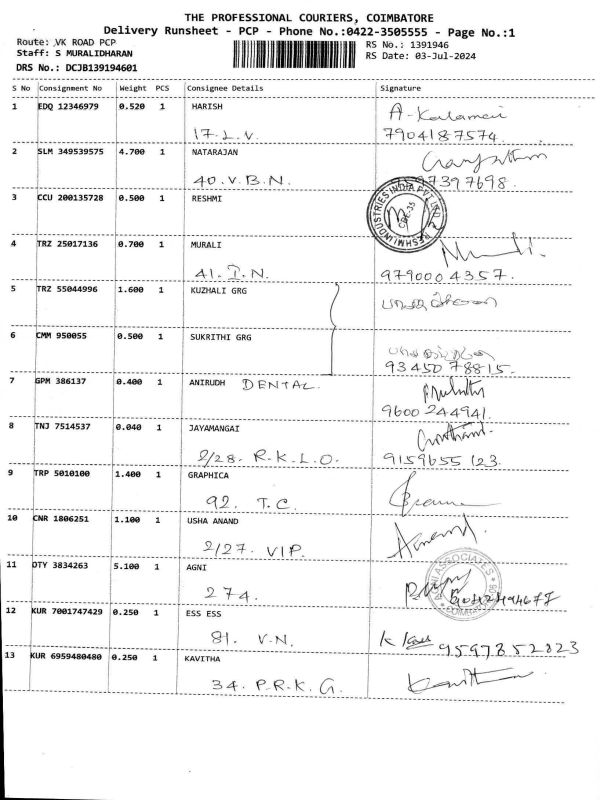 THE PROFESSIONAL COURIERS, COIMBATORE
Delivery Runsheet - PCP - Phone No.:0422-3505555 - Page No.:1
Route: VK ROAD PCP
RS No.: 1391946
Staff: S MURALIDHARAN
RS Date: 03-Jul-2024
DRS No.: DCJB139194601
S No Consignment No Weight PCS Consignee Details Signature
1 EDQ 12346979 0.520 1 HARISH
17. L. V. 7904187574
2 SLM 349539575 4.700 1 NATARAJAN
40. V. B. N. 97397698.
3 CCU 200135728 0.500 1 RESHMI
RESHMI INDUSTRIES INDIA PVT LTD
CBE-35
4 TRZ 25017136 0.700 1 MURALI
41. I. N. 9790004357.
5 TRZ 55044996 1.600 1 KUZHALI GRG
6 CMM 950055 0.500 1 SUKRITHI GRG
93450 78815.
7 GPM 386137 0.400 1 ANIRUDH DENTAL.
9600 244941.
8 TNJ 7514537 0.040 1 JAYAMANGAI
2/28. R. K. L. O. 9159655 123.
9 TRP 5010100 1.400 1 GRAPHICA
92. T. C.
10 CNR 1806251 1.100 1 USHA ANAND
2/27. VIP. Anand.
11 OTY 3834263 5.100 1 AGNI
274.
ASSOCIATES
12 KUR 7001747429 0.250 1 ESS ESS
81. V. N. 9597852823
13 KUR 6959480480 0.250 1 KAVITHA
34. P. R. K. G. Kavitha